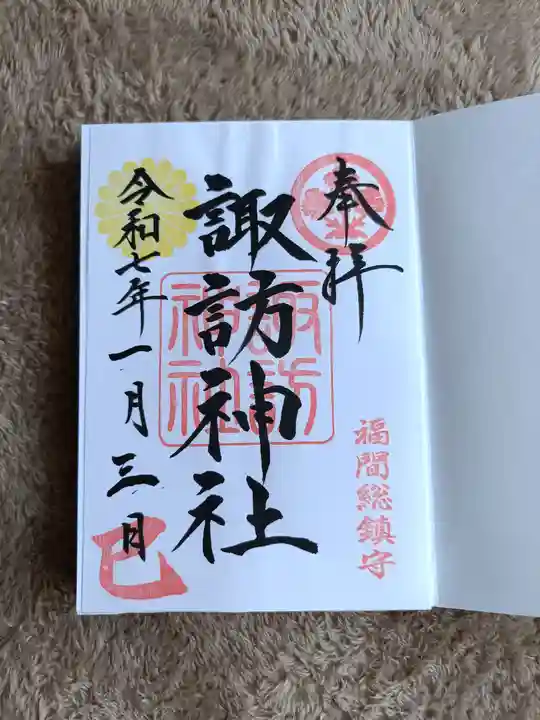 奉拝
福間総鎮守
諏訪神社
諏訪
神社
令和七年一月三日
巳